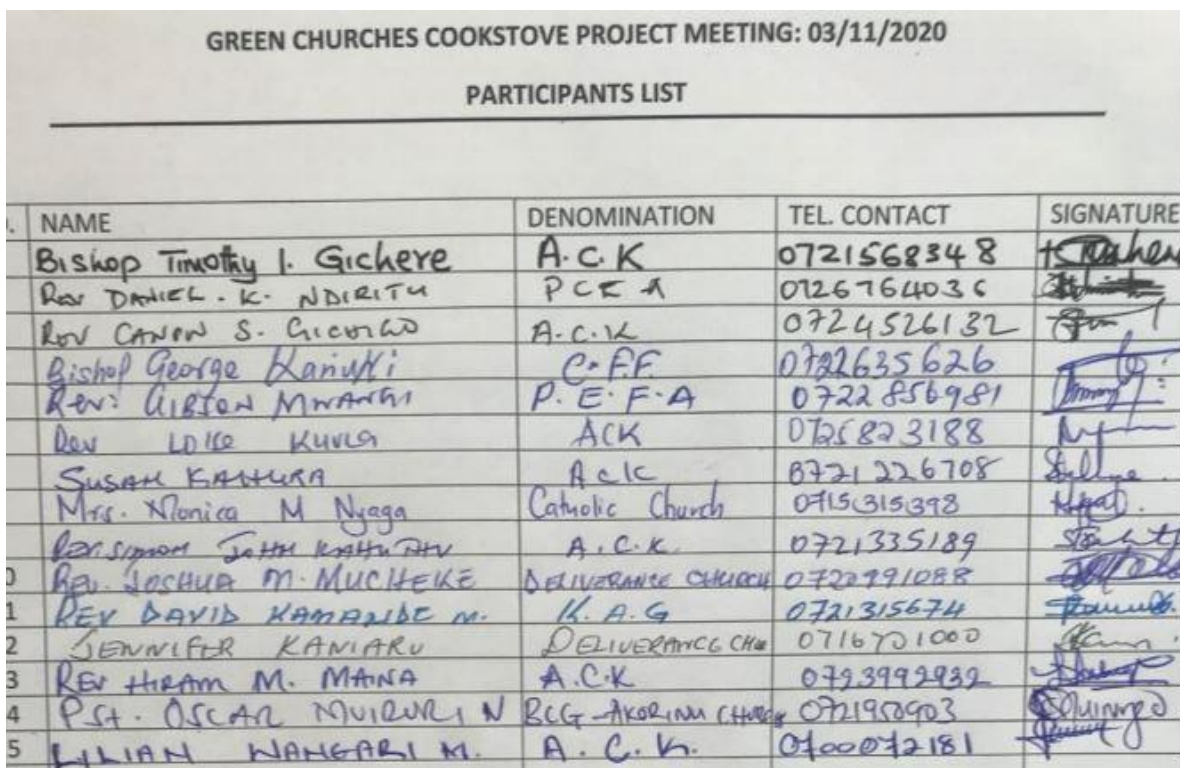 GREEN CHURCHES COOKSTOVE PROJECT MEETING: 03/11/2020
PARTICIPANTS LIST
. NAME DENOMINATION TEL. CONTACT SIGNATURE
Bishop Timothy I. Gichere A.C.K 0721568348
Rev DANIEL. K. NDIRITU PCEA 0726764036
Rev CANON S. A.C.K 0724526132
Bishop George Kariuki C.F.F 0722635626
Rev: MWANGI P.E.F.A 0722856981
Rev LOICE ACK 0725823188
SUSAN Ack 0721226708
Mrs. Monica M Nyaga Catholic Church 0715315398
JOHN A.C.K. 0721335189
0 Rev. JOSHUA M. MUCHEKE DELIVERANCE CHURCH
1 REV DAVID M. K.A.G 0721315674
2 JENNIFER KANIARU DELIVERANCE
3 REV HIRAM M. MAINA A.C.K
4 PST. OSCAR MUIRURI N BCG-AKORINU CHURCH
5 LILIAN WANGARI M. A.C.K. 0700072181